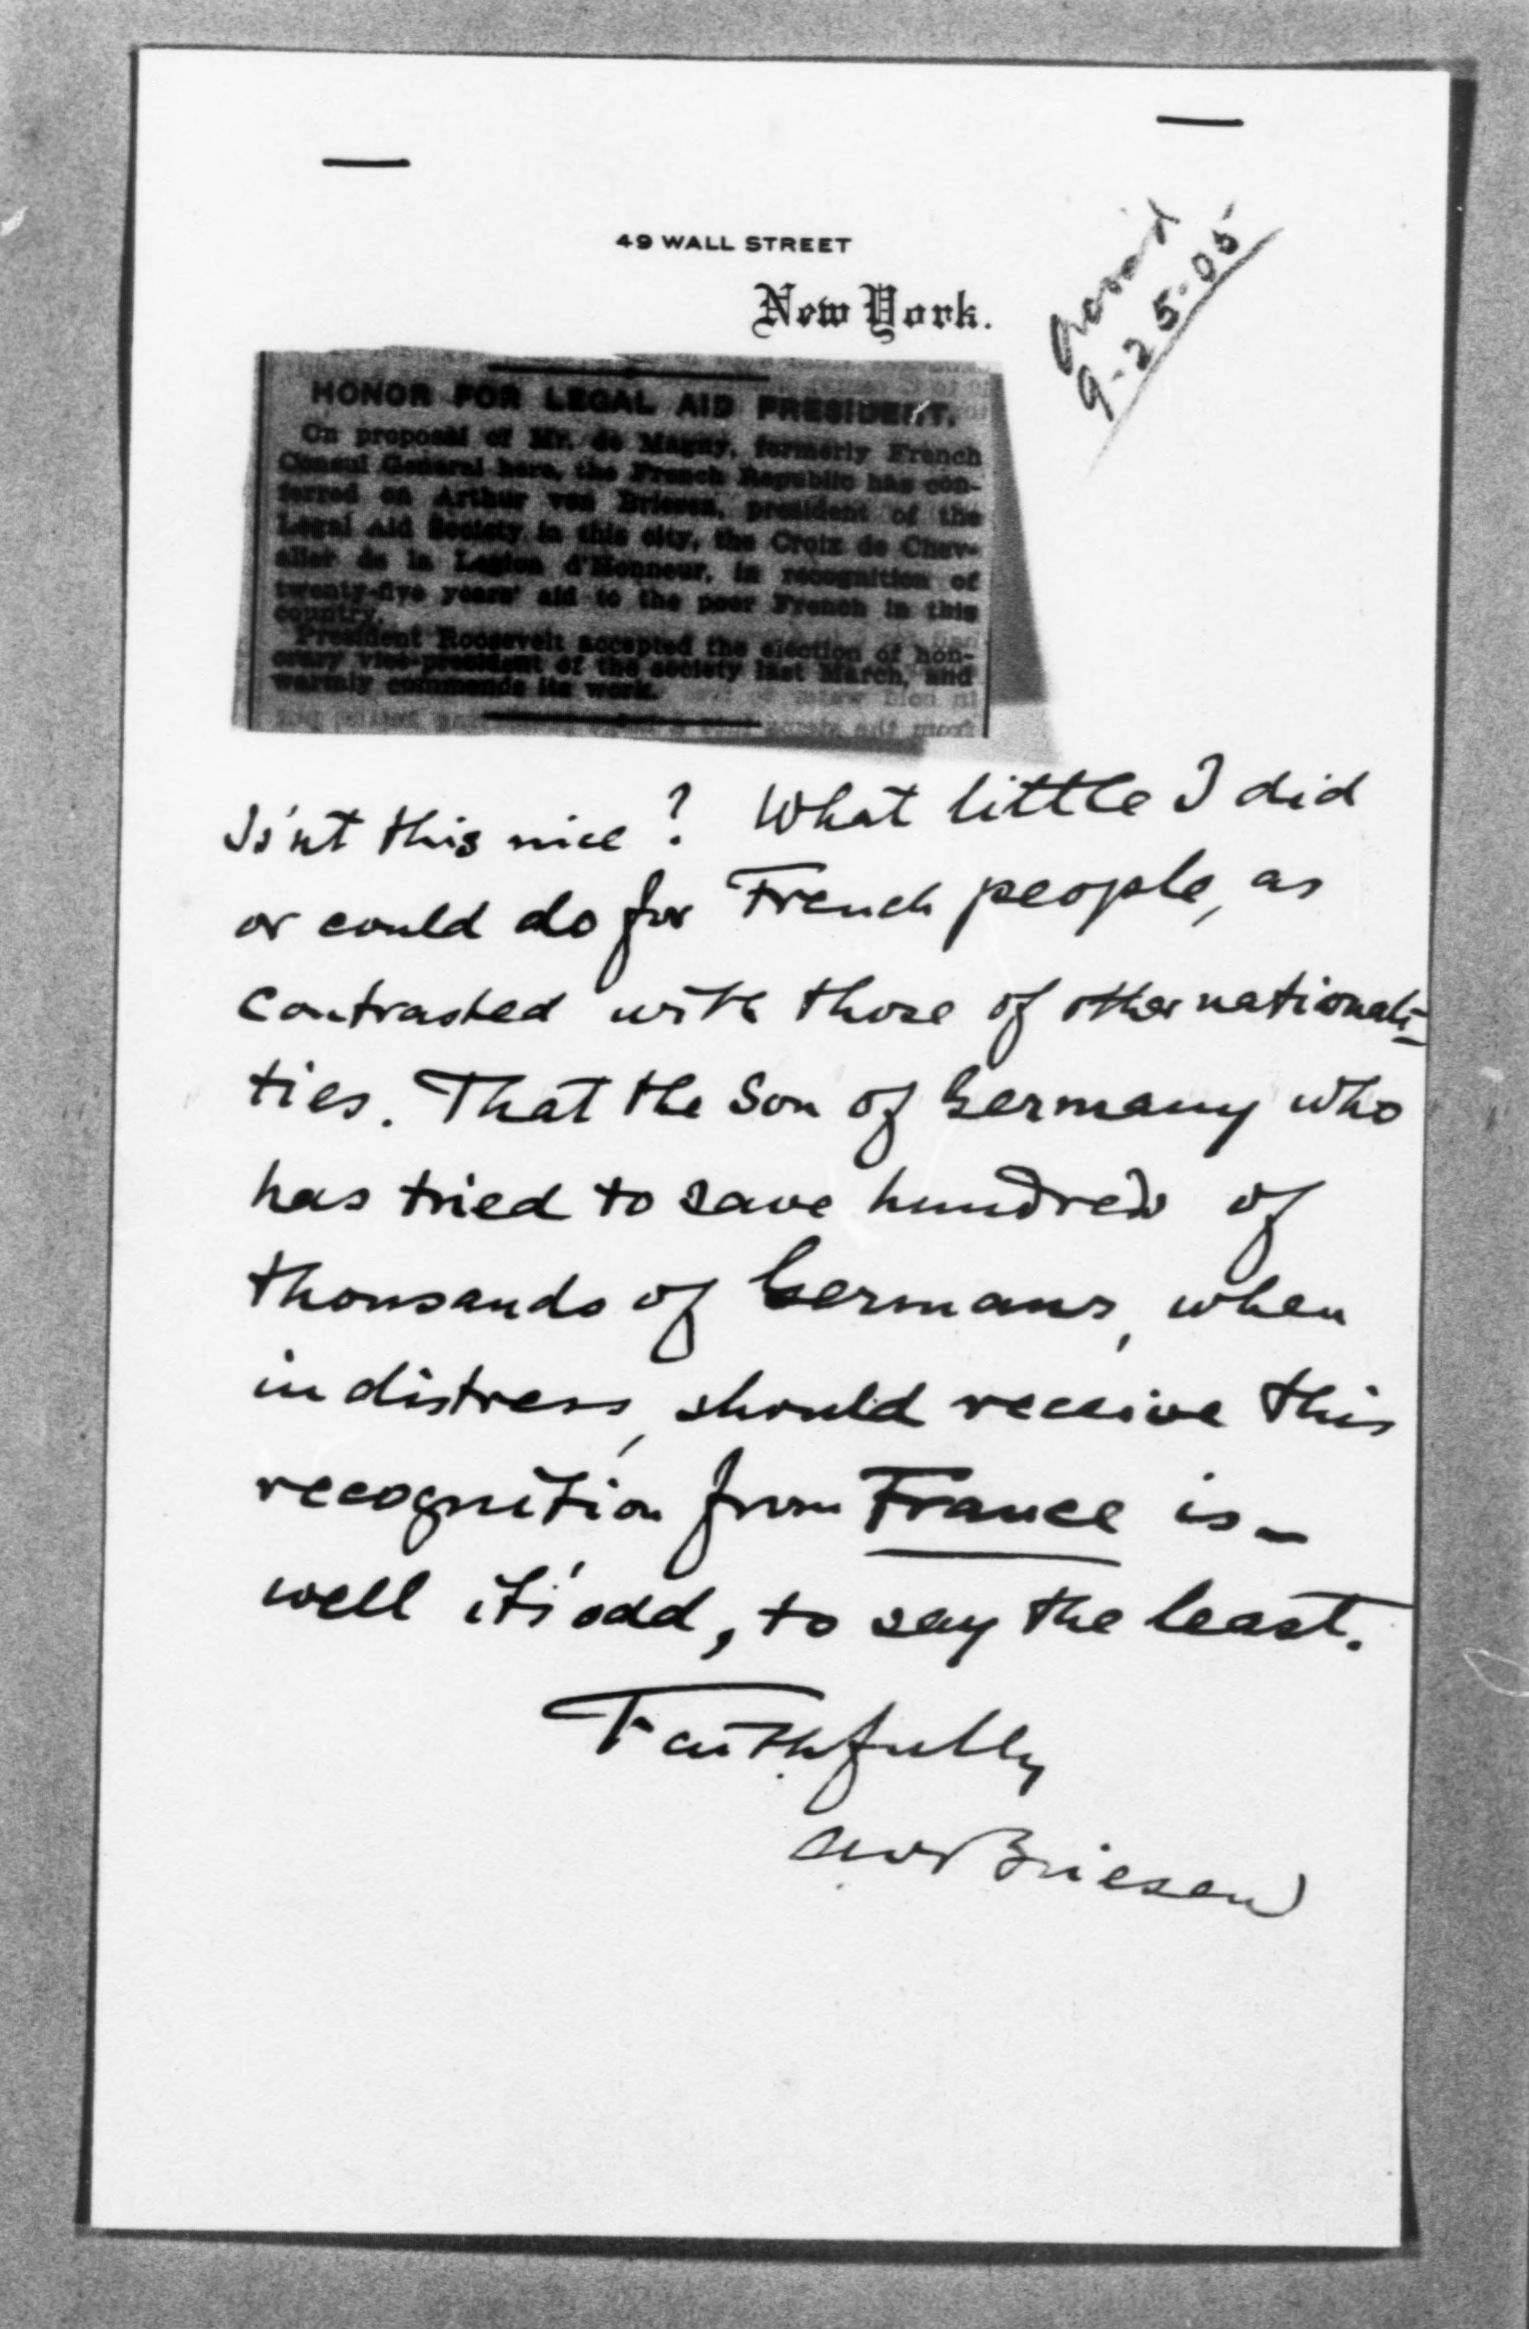 49 WALL STREET
New York.
9-25-05
HONOR FOR LEGAL AID PRESIDENT.
On proposal of Mr. de Magny, formerly French
Consul General here, the French Republic has con-
ferred on Arthur von Briesen, president of the
Legal Aid Society in this city, the Croix de Chev-
alier de la Legion d'Honneur, in recognition of
twenty-five years' aid to the poor French in this
country.
President Roosevelt accepted the election of hon-
orary vice-president of the society last March, and
warmly commends its work.
Is'nt this nice? What little I did
or could do for French people, as
contrasted with those of other nationali-
ties. That the Son of Germany who
has tried to save hundreds of
thousands of Germans, when
in distress, should receive this
recognition from France is—
well it's odd, to say the least.
Faithfully
AvBriesen